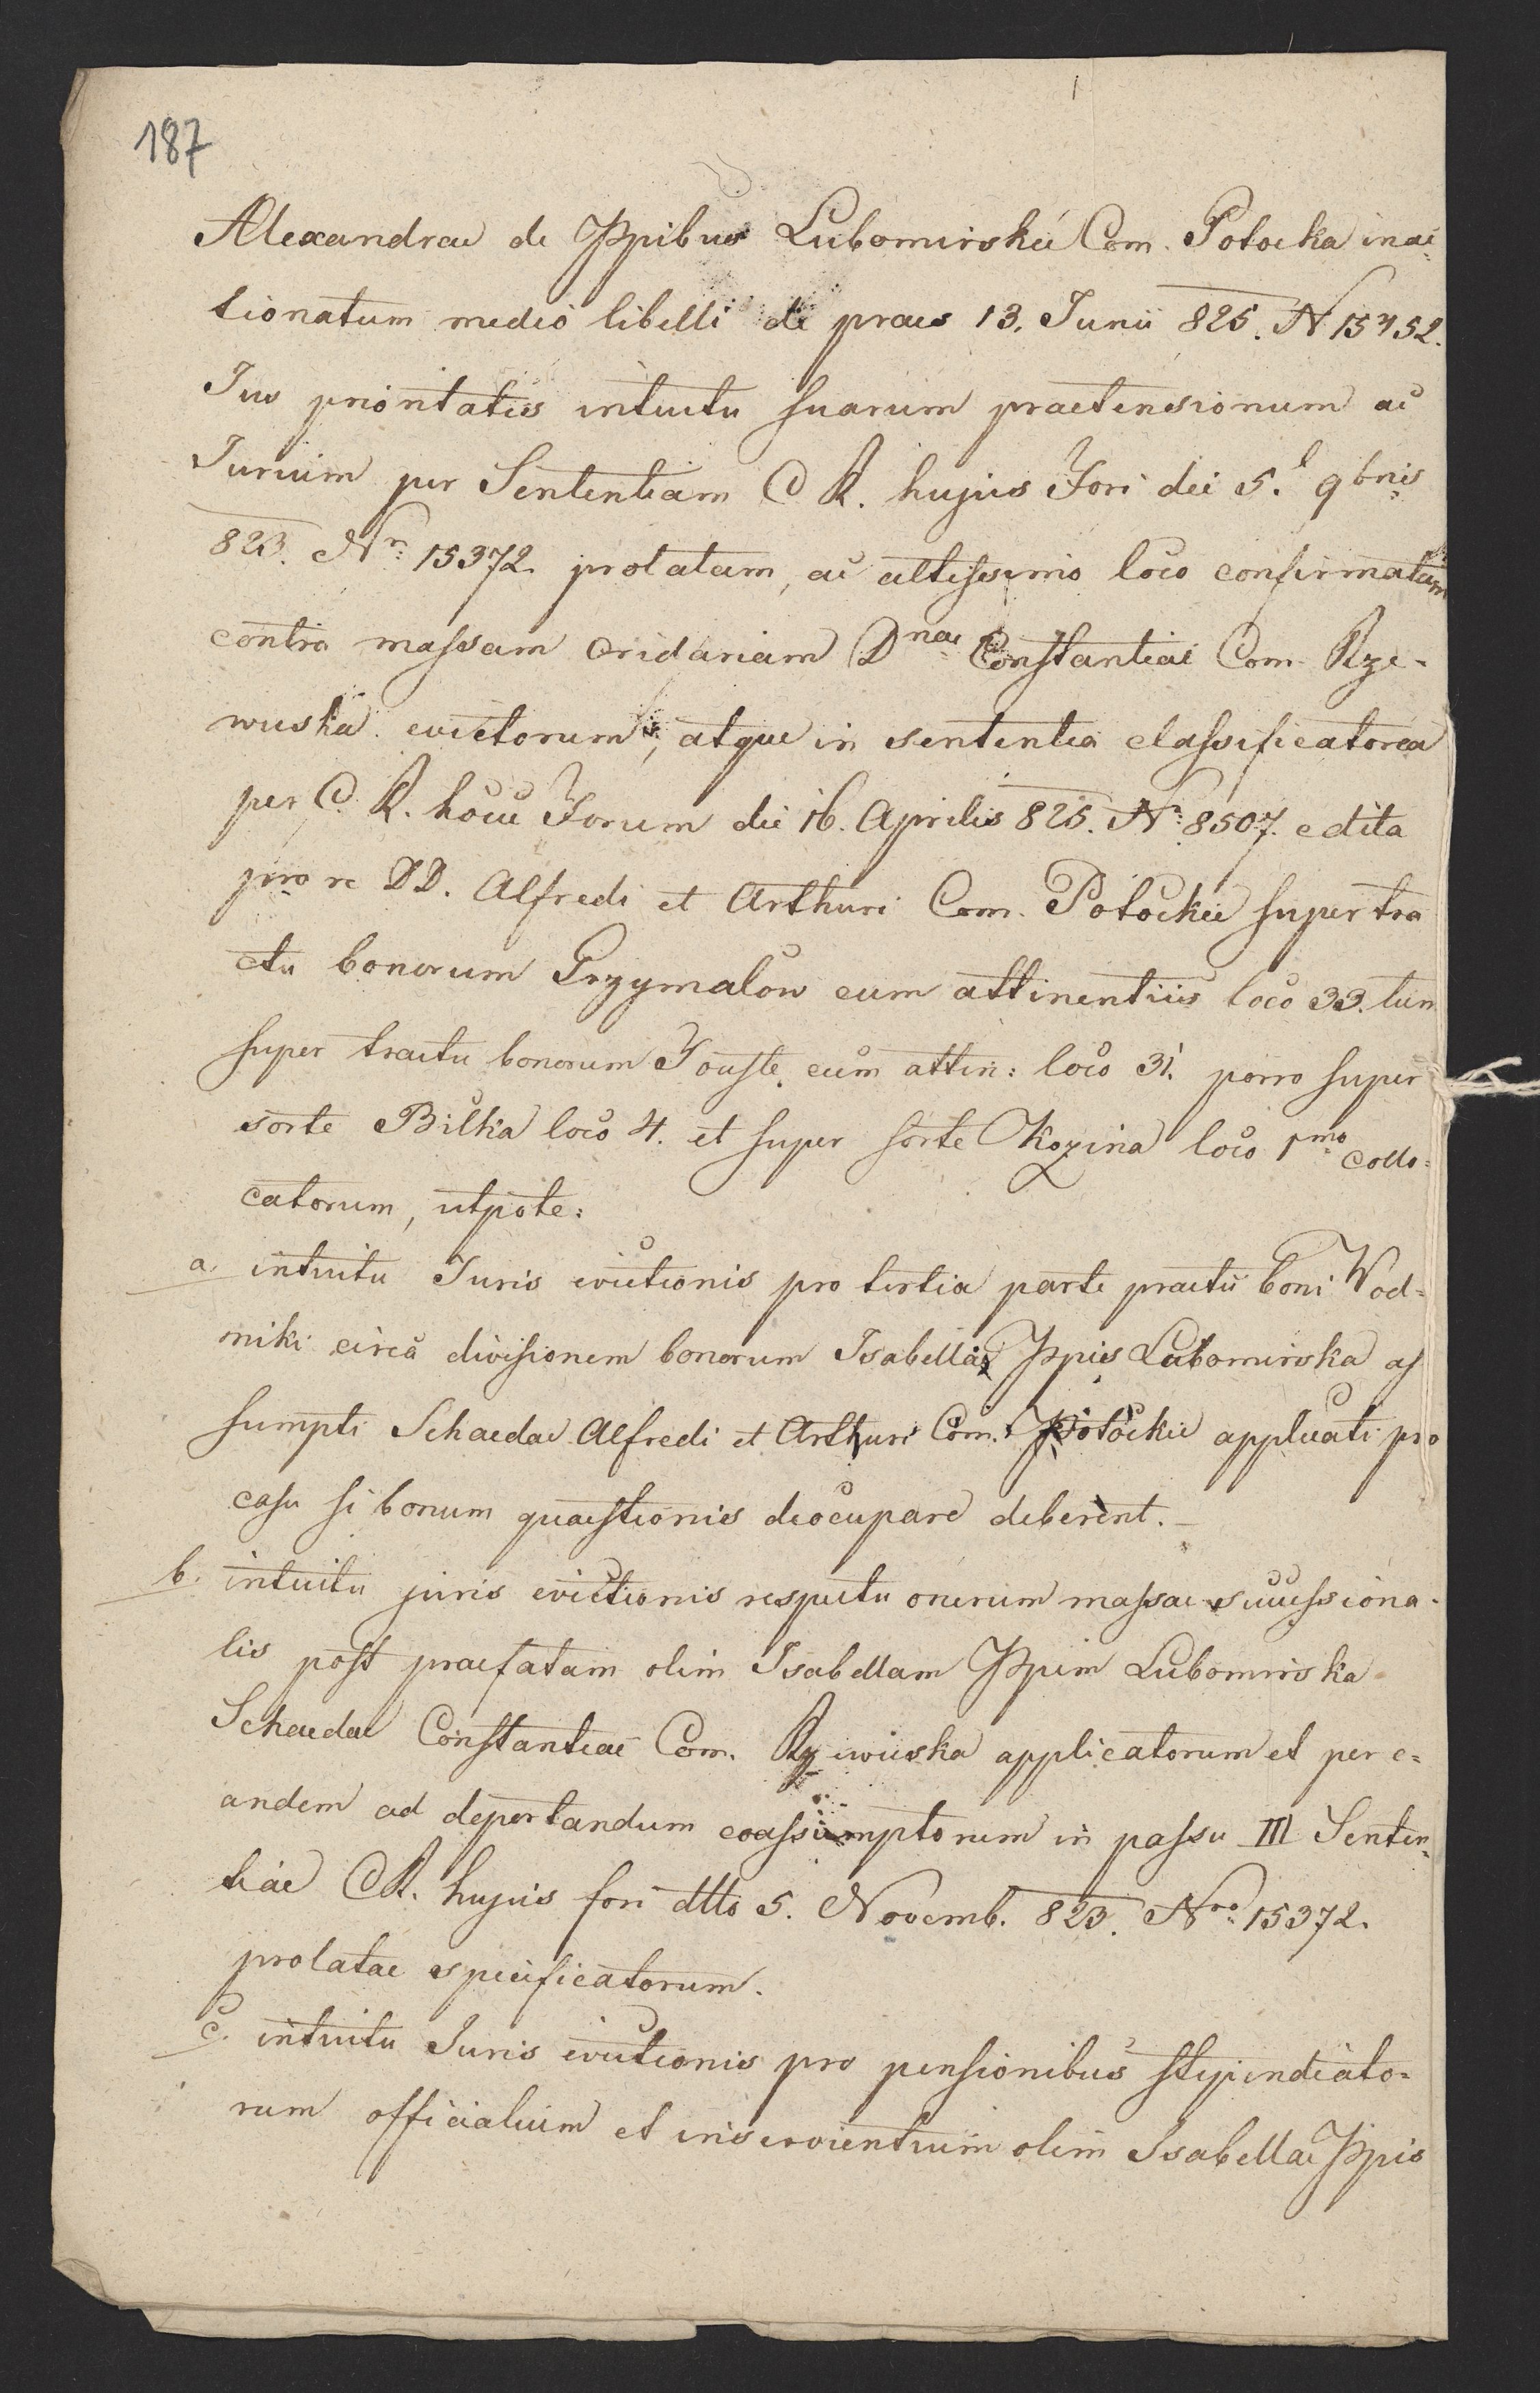 187
Alexandrae de Ppibus Lubomirskie Com. Potocka inac-
tionatum medio libelli de praes 13. Junii 825. N 15452.
Jus prioritatis intuitu suarum praetensionum ac
Jurium per Sententiam C R. hujus Fori die 5. 9bris
823. Nr: 15372 prolatam, ac altissimo loco confirmatam
contra massam cridariam Dnae Constantiae Com. Rze-
wuska evictorum, atque in sententia classificatoria
per C. R. hocce Forum die 16. Aprilis 825. Nr: 8507. edita
pro re DD. Alfredi et Arthuri Com. Potockie super tra
ctu bonorum Grzymalow cum attinentiis loco 33. tum
super tractu bonorum Touste cum attin: loco 31. porro super
sorte Bilka loco 4. et super sorte Kozina loco 1mo collo-
catorum, utpote:
a. intuitu Juris evictionis pro tertia parte praetii boni Wod-
niki circa divisionem bonorum Isabellae Ppis Lubomirska as
sumpti Schaedae Alfredi et Arthuri Com. Potockie applicati pro
casu si bonum quaestionis deocupare deberent. –
b. intuitu juris evictionis respectu onerum massae successiona-
lis post praefatam olim Isabellam Ppim Lubomirska
Schaedae Constantiae Com. Rzewuska applicatorum et per e-
andem ad deportandum coassumptorum in passu III Senten-
tiae CR. hujus fori dtto 5. Novemb. 823. Nro: 15372.
prolatae specificatorum.
c. intuitu Juris evictionis pro pensionibus stipendiato-
rum officialium et inservientium olim Isabellae Ppis